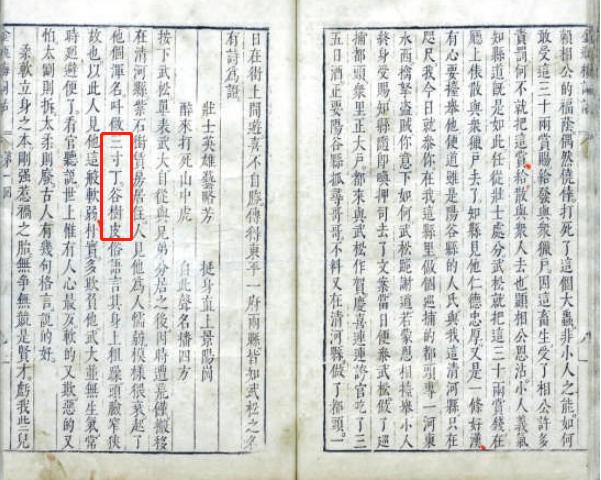 賴相公的福蔭偶然僥倖打死了這個大蟲非小人之能如何
敢受這三十兩賞賜給發與衆獵戶因這畜生受了相公許多
責罰何不就把這賞給散與衆人去也顯相公恩沾小人義氣
知縣道既是如此任從壯士處分武松就把這三十兩賞錢在
廳上俵散與衆獵戶去了知縣見他仁德忠厚又是一條好漢
有心要擡舉他便道雖是陽谷縣的人氏與我這清河縣只在
咫尺我今日就參你在我這縣里做個巡捕的都頭專一河東
水西擒拏盜賊你意下如何武松跪謝道若蒙恩相擡舉小人
終身受賜知縣隨即喚押司立了文案當日便參武松做了巡
捕都頭衆里正大戶都來與武松作賀慶喜連連誇官吃了三
五日酒正要陽谷縣抓尋哥哥不料又在清河縣做了都頭一
日在街上閒遊喜不自勝傳得東平一府兩縣皆知武松之名
有詩為證
壯士英雄藝略芳 挺身直上景陽岡
醉來打死山中虎 自此聲名播四方
按下武松單表武大自從與兄弟分居之後因時遭荒饉搬移
在清河縣紫石街賃房居住人見他為人懦弱模樣猥衰起了
他個渾名叫做三寸丁谷樹皮俗語言其身上粗躁頭臉窄狹
故也以此人見他這般軟弱朴實多欺負他武大並無生氣常
時迴避便了看官聽說世上惟有人心最歹軟的又欺惡的又
怕太剛則折太柔則廢古人有幾句格言說的好
柔軟立身之本剛強惹禍之胎無爭無競是賢才虧我些兒